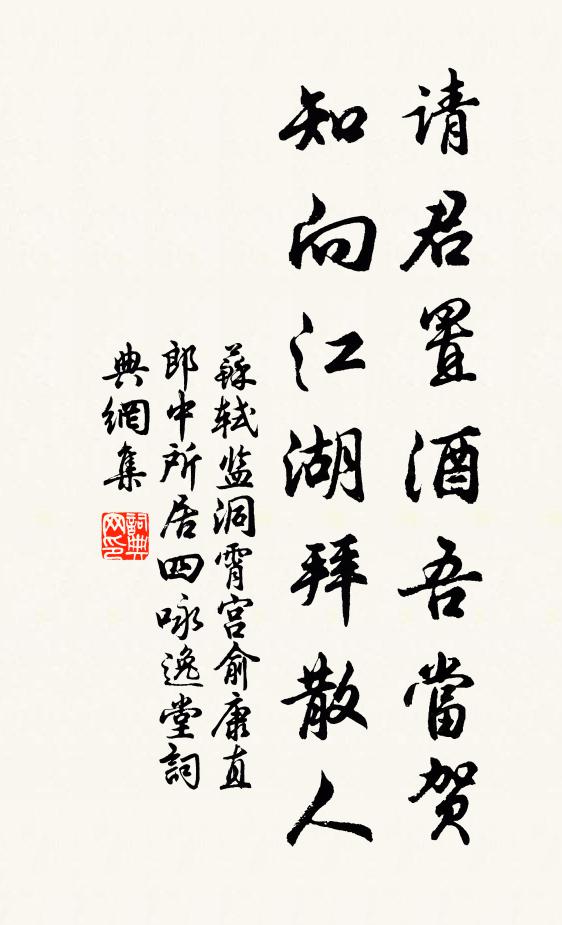 请君置酒吾當贺
知向江湖拜散人
蘇轼监洞霄宫俞康直
郎中所居四咏逸堂詞
典網集
詞典网印